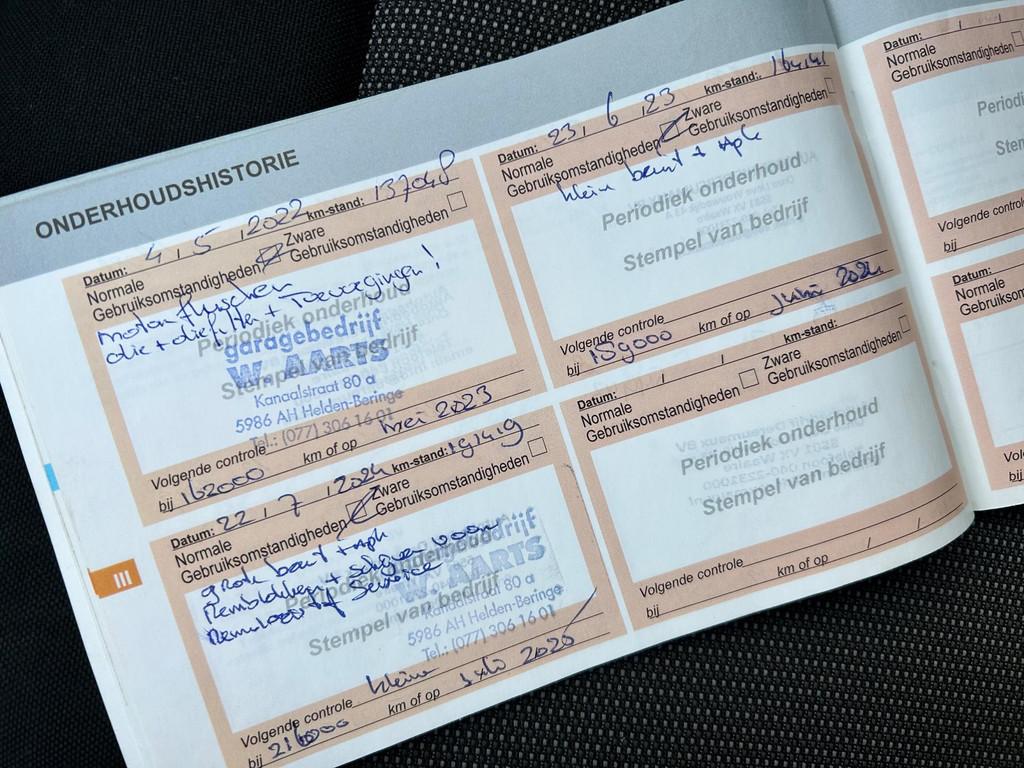 ONDERHOUDSHISTORIE
Datum: 4 / 5 / 2022 km-stand: 137048
Normale Gebruiksomstandigheden
Zware Gebruiksomstandigheden
motor flushen
olie + oliefilter + Toevoegingen!
Periodiek onderhoud
garagebedrijf
W. AARTS
Stempel van bedrijf
Kanaalstraat 80 a
5986 AH Helden-Beringe
Tel.: (077) 306 16 01
Volgende controle
bij 162000 km of op mei 2023
Datum: 23 / 6 / 23 km-stand:
Normale Gebruiksomstandigheden
Zware Gebruiksomstandigheden
klein beurt + apk
Periodiek onderhoud
Stempel van bedrijf
Volgende controle
bij 189000 km of op juni 2024
Datum: 22 / 7 / 2024 km-stand: 191419
Normale Gebruiksomstandigheden
Zware Gebruiksomstandigheden
grote beurt + apk
Remblokken + schijven voor
Remvloeistof Service
Periodiek onderhoud
garagebedrijf
W. AARTS
Stempel van bedrijf
Kanaalstraat 80 a
5986 AH Helden-Beringe
Tel.: (077) 306 16 01
Volgende controle kleine
bij 216000 km of op Julo 2025
Datum: / / km-stand:
Normale Gebruiksomstandigheden
Zware Gebruiksomstandigheden
Periodiek onderhoud
Stempel van bedrijf
Volgende controle
bij km of op / /
III
Datum: / /
Normale
Gebruiksomstandigheden
Periodi
Stem
Volgende control
bij
Datum: /
Normale
Gebruiksom
Vo
bij